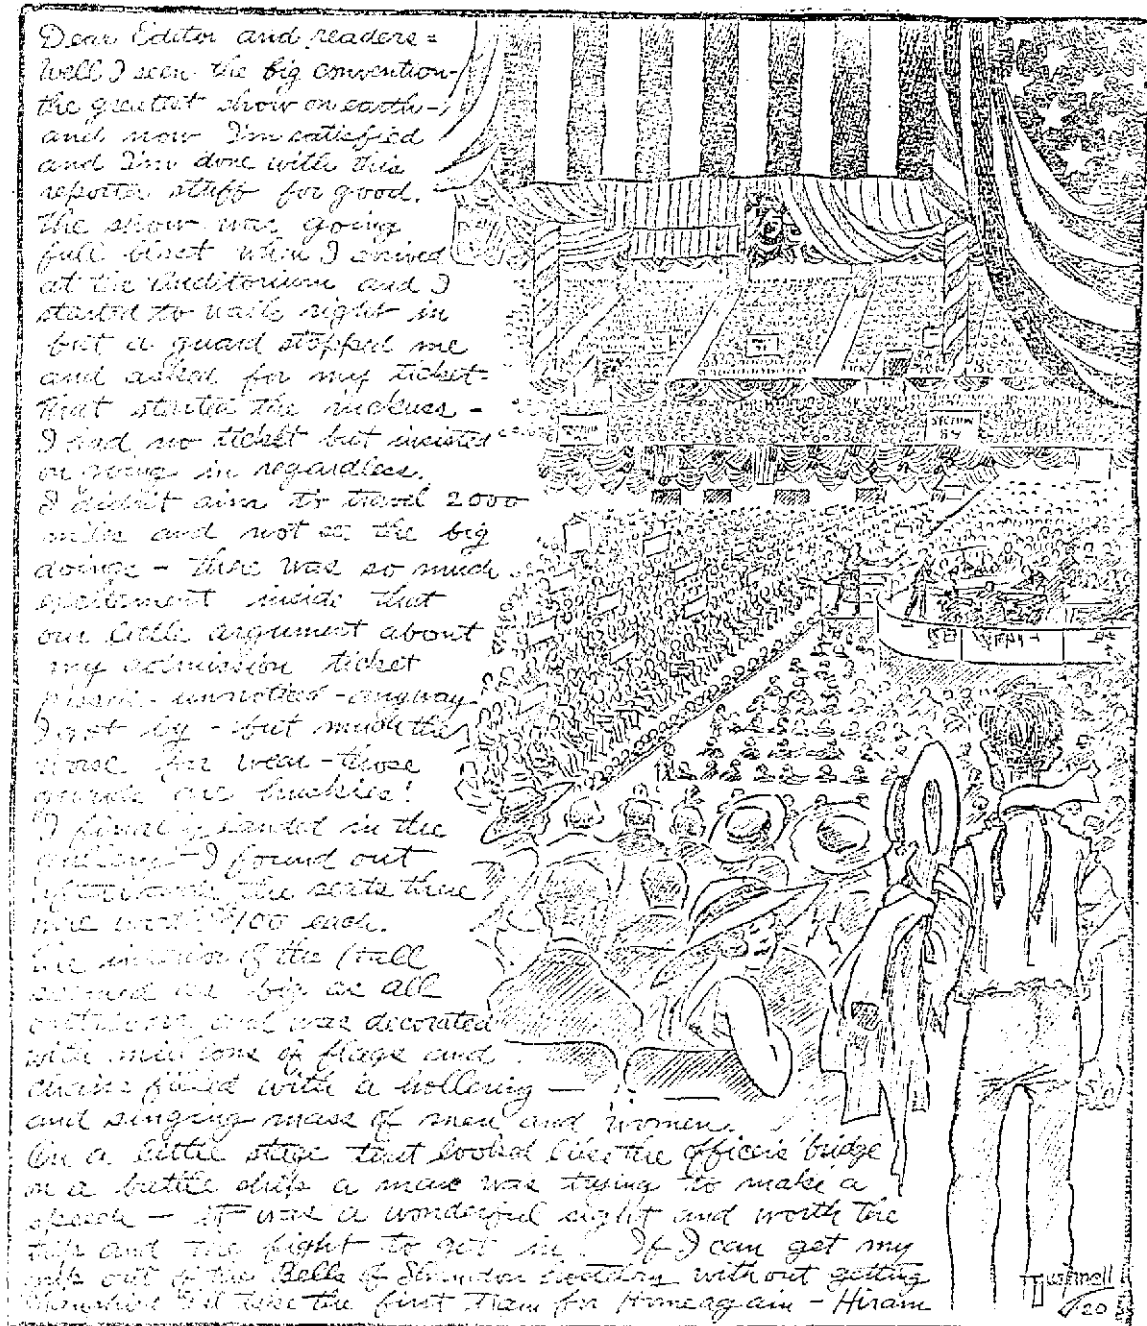 Dear Editor and readers =
Well I seen the big convention -
the greatest show on earth -
and now I'm satisfied
and I'm done with this
reporter stuff for good.
The show was going
full blast when I arrived
at the Auditorium and I
started to walk right in
but a guard stopped me
and asked for my ticket -
that started the ruckuss -
I had no ticket but insisted
on going in regardless.
I didn't aim to travel 2000
miles and not see the big
doings - there was so much
excitement inside that
our little argument about
my admission ticket
passed - unnoticed - anyway
I got by - but much the
worse for wear - those
guards are huskies!
I finally landed in the
gallery - I found out
afterwards the seats there
were worth $100 each.
The interior of the Hall
seemed as big as all
outdoors and was decorated
with millions of flags and
chairs filled with a hollering —
and singing mass of men and women.
On a little stage that looked like the officers' bridge
on a battle ship a man was trying to make a
speech - it was a wonderful sight and worth the
trip and the fight to get in. If I can get my
grip out of the Bells of Shandon without getting
I'll take the first train for Home again - Hiram
SECTION
SECTION
89
20